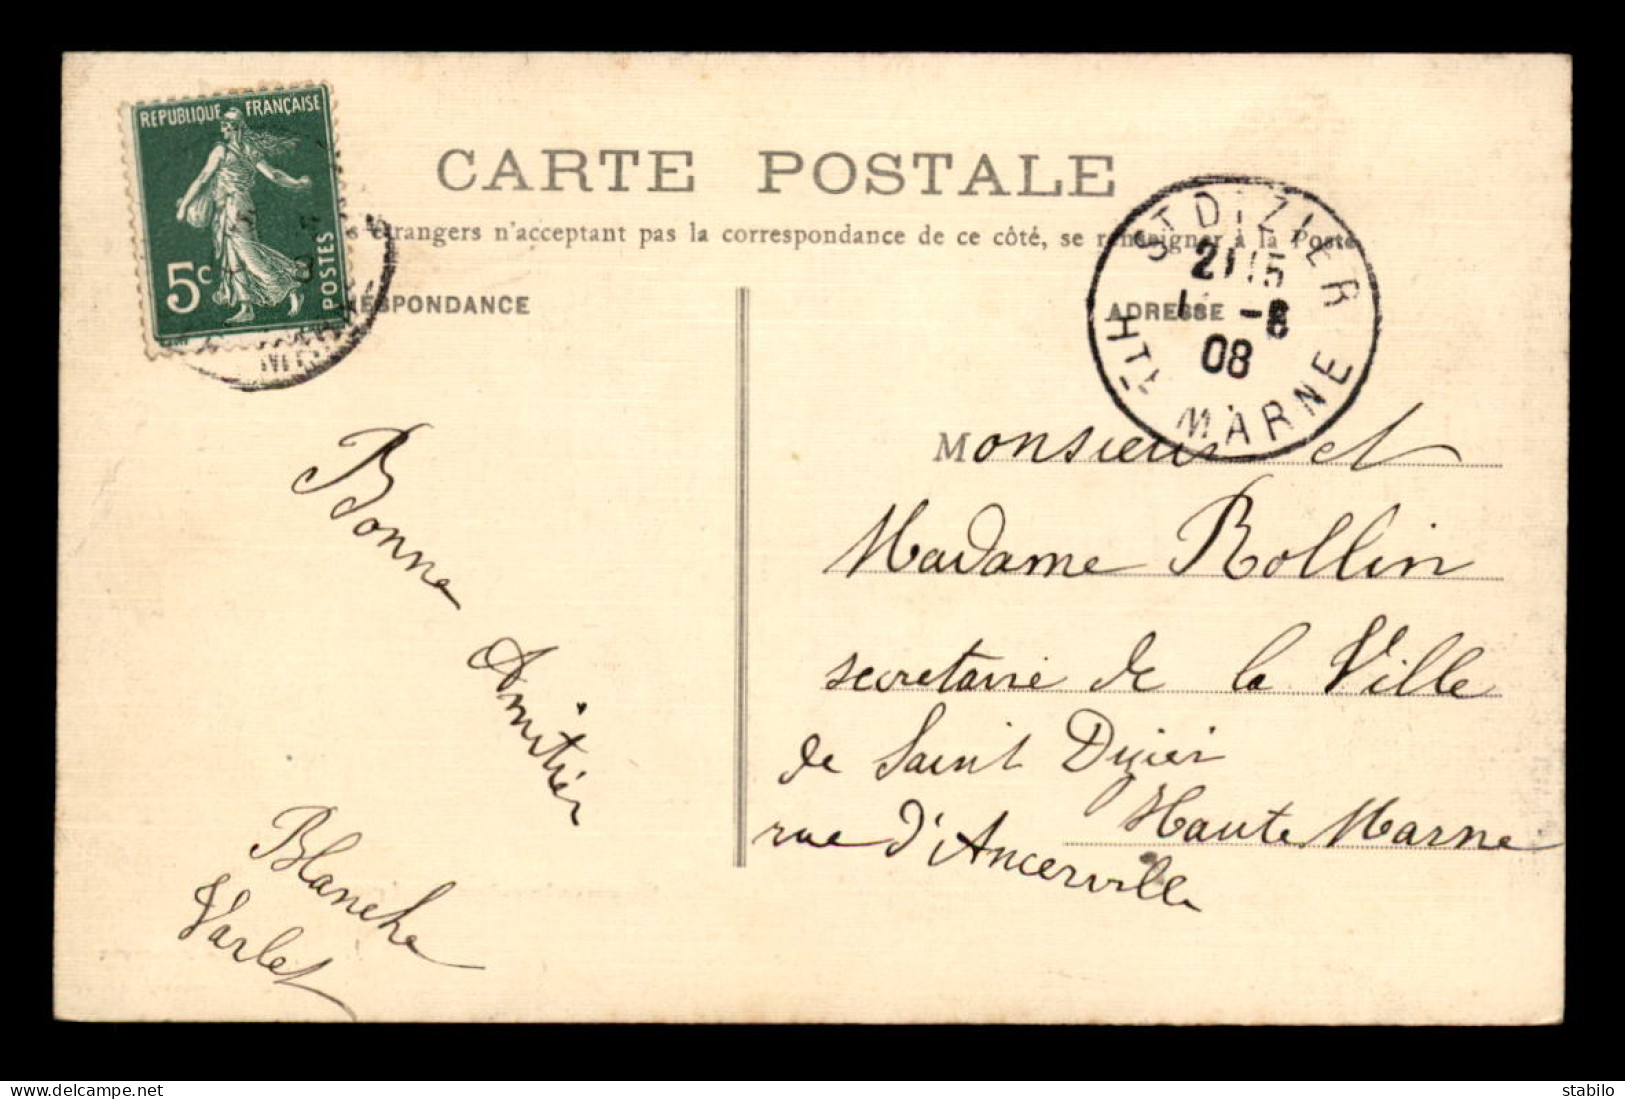 REPUBLIQUE FRANÇAISE
5c
POSTES
CARTE POSTALE
étrangers n'acceptant pas la correspondance de ce côté, se renseigner à la Poste
RESPONDANCE
ADRESSE
ST DIZIER
21 15
-8
08
HTE MARNE
Bonne
Amitiér
Blanche
Varlet
Monsieur et
Madame Rollin
secretaire de la Ville
de Saint Dizier
Haute Marne
rue d'Ancerville
delcampe.net
stabilo